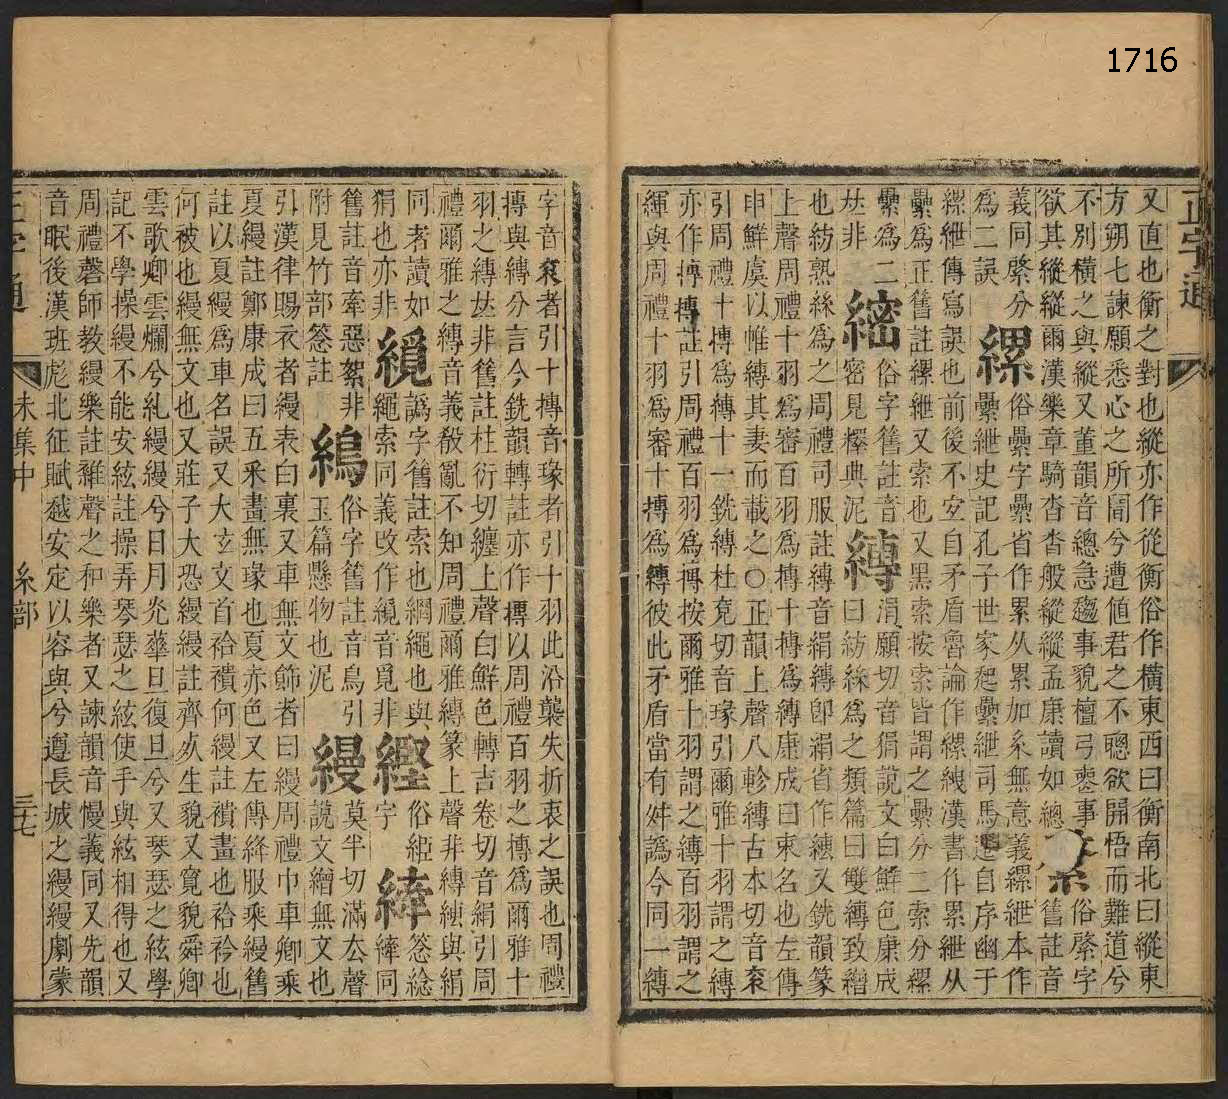 1716
正字通
又直也衡之對也縱亦作從衡俗作橫東西曰衡南北曰縱東
方朔七諫願悉心之所聞兮遭値君之不聰欲開悟而難道兮
不別橫之與縱又董韻音總急趨事貌檀弓喪事 俗綮字
欲其縱縱爾漢樂章騎沓沓般縱縱孟康讀如總 舊註音
義同綮分 縲俗纍字纍省作累从累加糸無意義縲絏本作
為二誤 纍絏史記孔子世家起纍絏司馬遷自序幽于
縲絏傳寫誤也前後不安自矛盾魯論作縲絏漢書作累絏从
纍為正舊註縲絏又索也又黑索按索皆謂之纍分二索分縲
纍為二 繀俗字舊註音 縳涓願切音狷說文白鮮色康成
𠀤非 密見檡典泥 曰紡絲為之類篇曰雙縳致繒
也紡熟絲為之周禮司服註縳音絹縳卽絹省作縛又銑韻篆
上聲周禮十羽為審百羽為摶十摶為縳康成曰束名也左傳
申鮮虞以帷縳其妻而載之○正韻上聲八軫縳古本切音袞
引周禮十摶為縳十一銑縳杜兗切音瑑引爾雅十羽謂之縳
亦作摶摶註引周禮百羽為摶按爾雅十羽謂之縳百羽謂之
緷與周禮十羽為審十摶為縳彼此矛盾當有舛譌今同一縳
字音袞者引十摶音瑑者引十羽此沿襲失折衷之誤也周禮
摶與縳分言今銑韻轉註亦作摶以周禮百羽之摶為爾雅十
羽之縳𠀤非舊註柱衍切纏上聲白鮮色轉吉卷切音絹引周
禮爾雅之縳音義殽亂不知周禮爾雅縳篆上聲非縳䋎與絹
同者讀如 繉譌字舊註索也綱繩也與 繦俗絙 䋽䇭綐
狷也亦非 繩索同義改作繉音覓非 字 縴同
舊註音牽惡絮非 䋿俗字舊註音鳥引 縵莫半切滿去聲
附見竹部䇭註 玉篇懸物也泥 說文繒無文也
引漢律賜衣者縵表白裏又車無文飾者曰縵周禮巾車卿乘
夏縵註鄭康成曰五采畫無瑑也夏赤色又左傳絳服乘縵舊
註以夏縵為車名誤又大玄文首袷襩何縵註襩畫也袷衿也
何被也縵無文也又莊子大恐縵縵註齊死生貌又寬貌舜卿
雲歌卿雲爛兮糺縵縵兮日月光華旦復旦兮又琴瑟之絃學
記不學操縵不能安絃註操弄琴瑟之絃使手與絃相得也又
周禮磬師教縵樂註雜聲之和樂者又諫韻音慢義同又先韻
音眠後漢班彪北征賦越安定以容與兮遵長城之縵縵劇蒙
正字通 未集中 糸部 三七